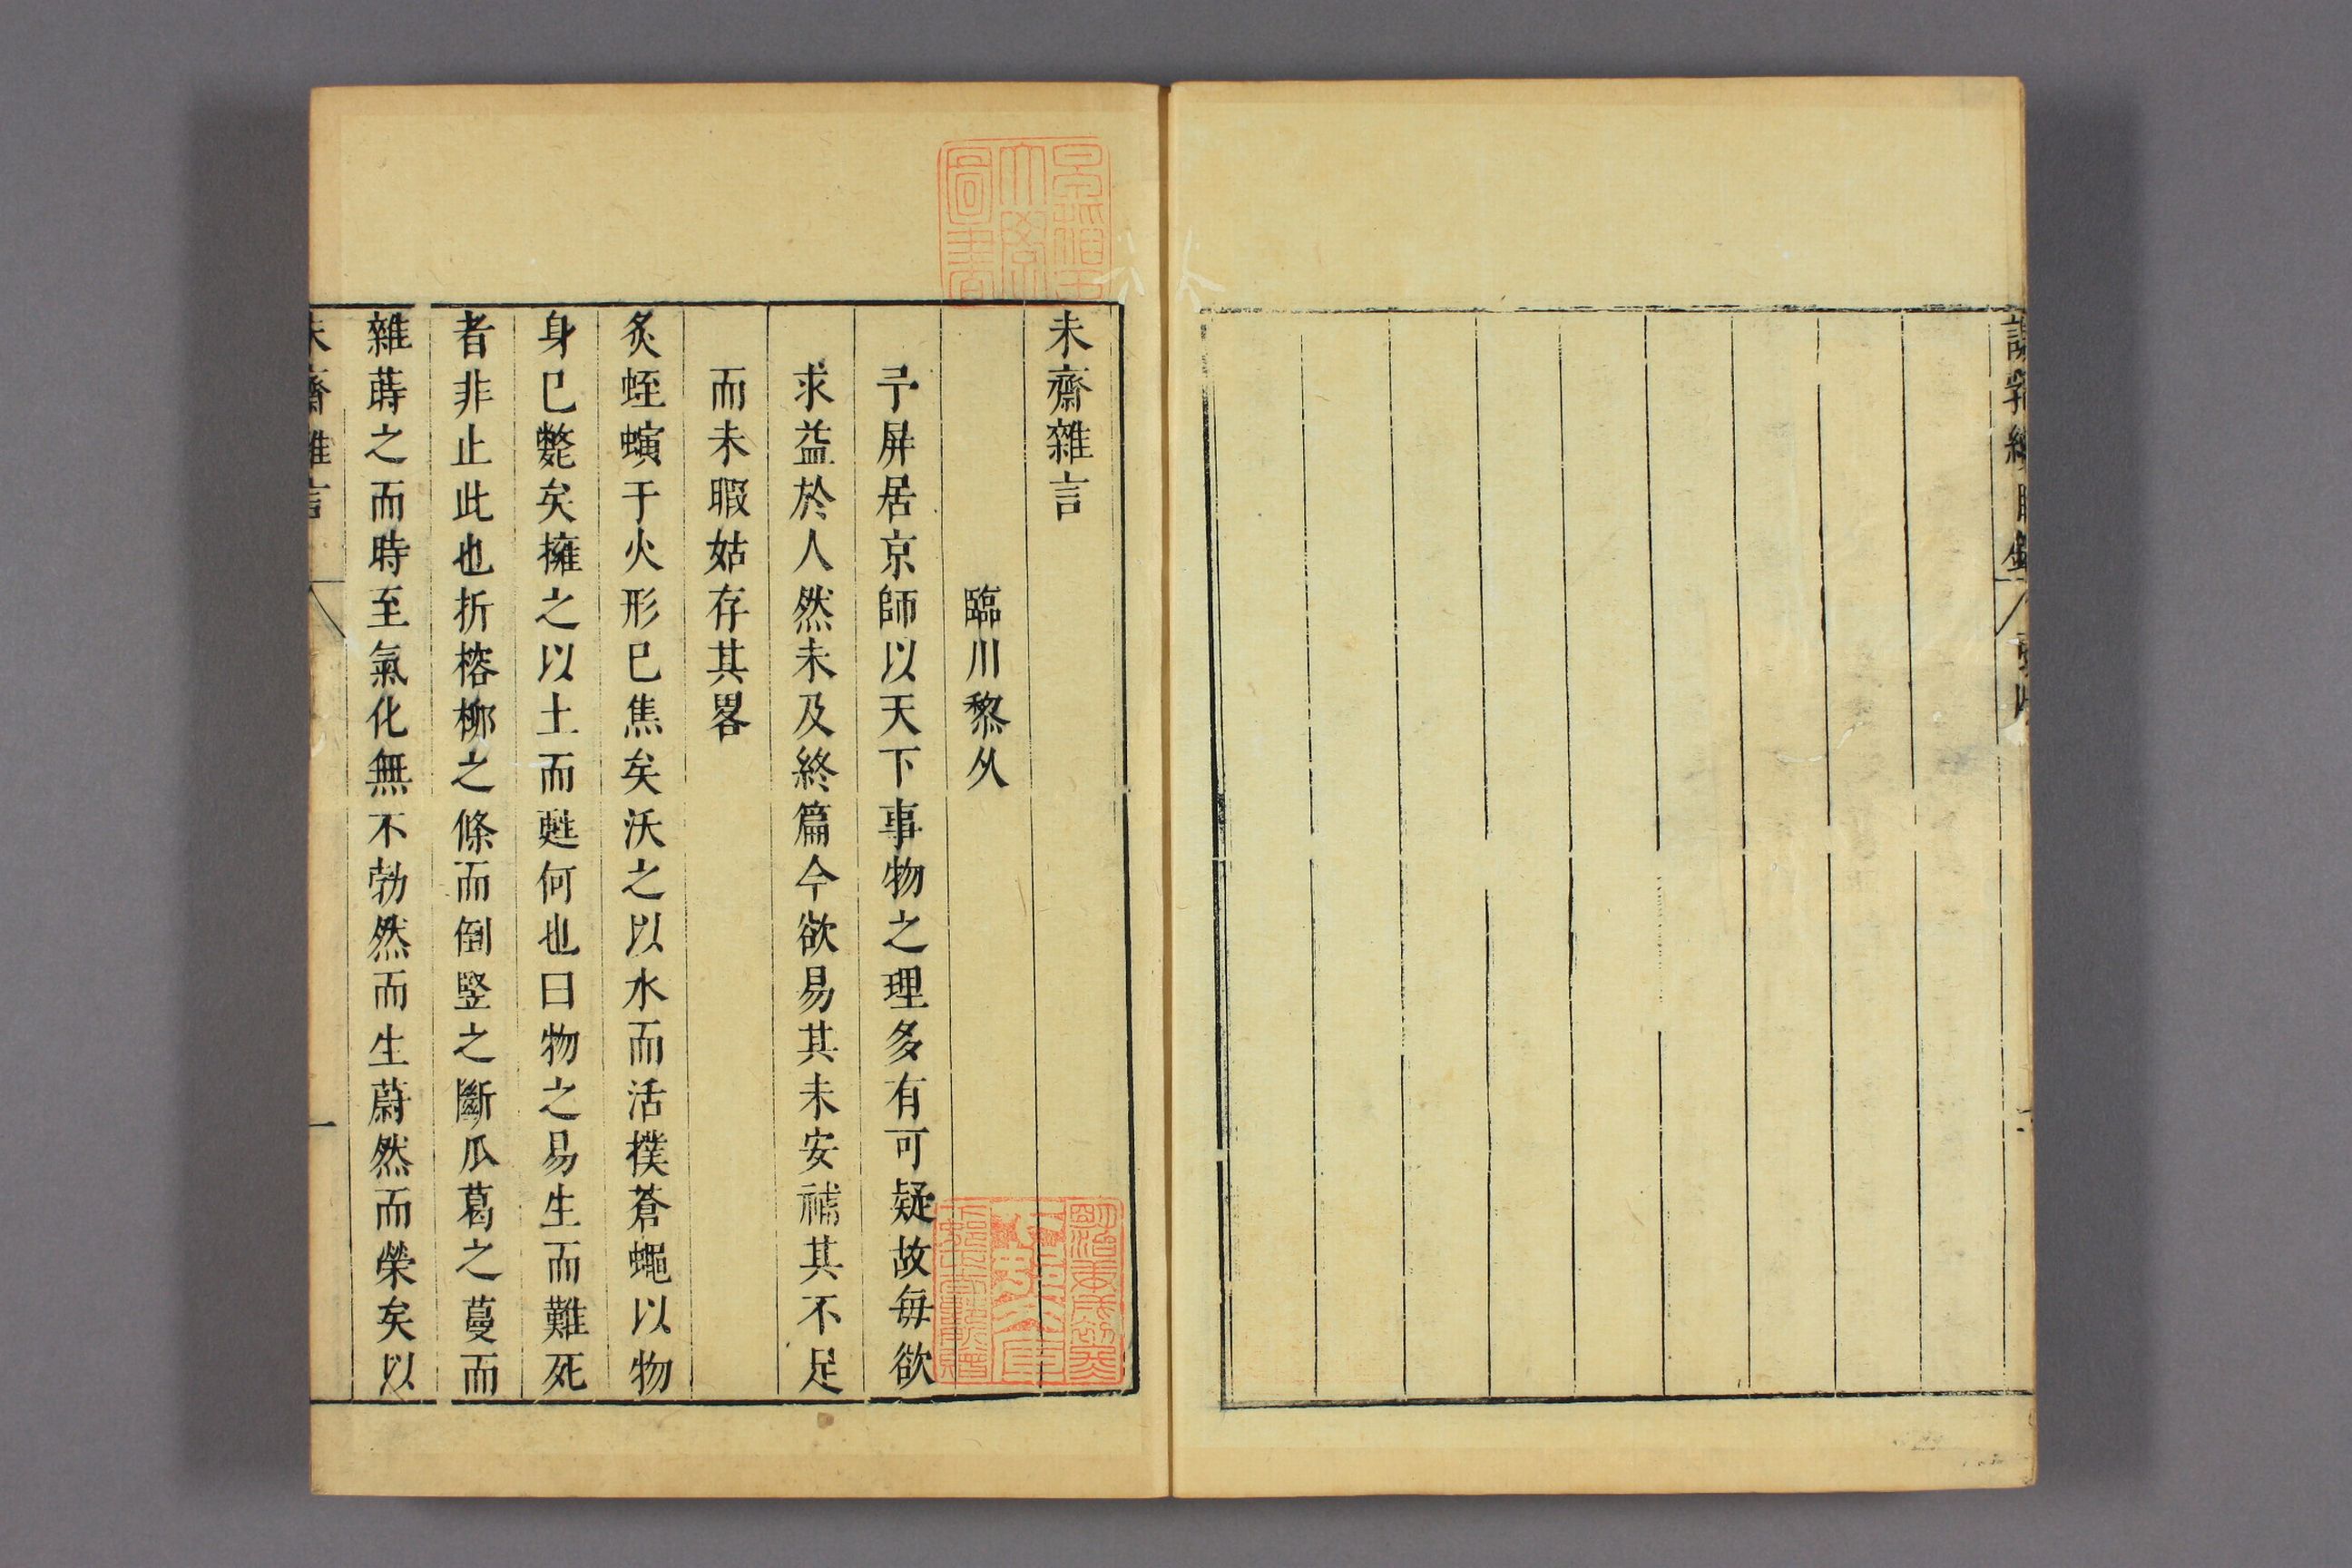 未齋雜言
臨川黎久
予屏居京師以天下事物之理多有可疑故每欲
求益於人然未及終篇今欲易其未安補其不足
而未暇姑存其畧
炙蛭螾于火形已焦矣沃之以水而活撲蒼蠅以物
身已斃矣擁之以土而甦何也曰物之易生而難死
者非止此也折榕柳之條而倒竪之斷瓜葛之蔓而
雜蒔之而時至氣化無不勃然而生蔚然而榮矣以
未齋雜言
一